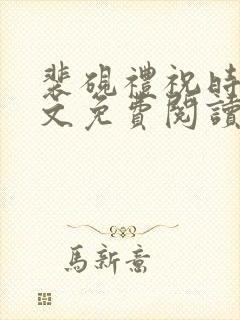 裴硯禮祝時
文免費閱讀
馬新意